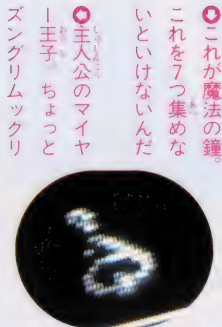 ⬇これが魔法の鐘。
これを7つ集めな
いといけないんだ
⬅主人公のマイヤ
ー王子。ちょっと
ズングリムックリ